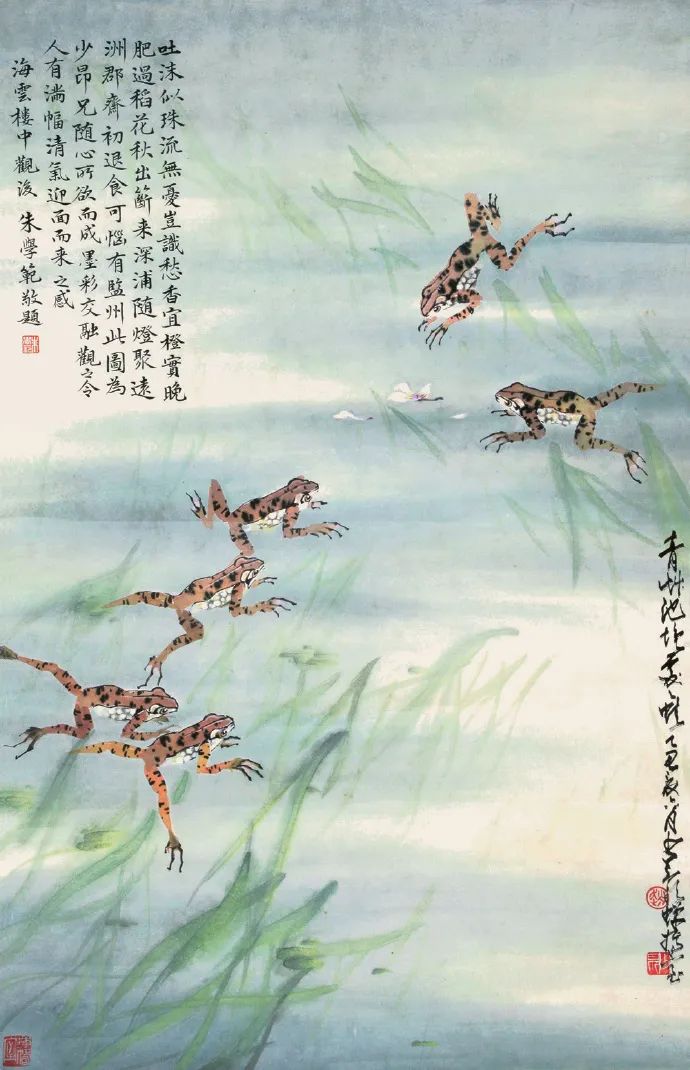 吐沫似珠流無憂豈識愁香宜橙實晚
肥過稻花秋出籪来深浦隨燈聚遠
洲郡齋初退食可惱有監州此圖為
少昂兄隨心所欲而成墨彩交融觀之令
人有滿幅清氣迎面而来之感
海雲樓中觀後 朱學範敬題
青艸池塘處處蛙 乙丑